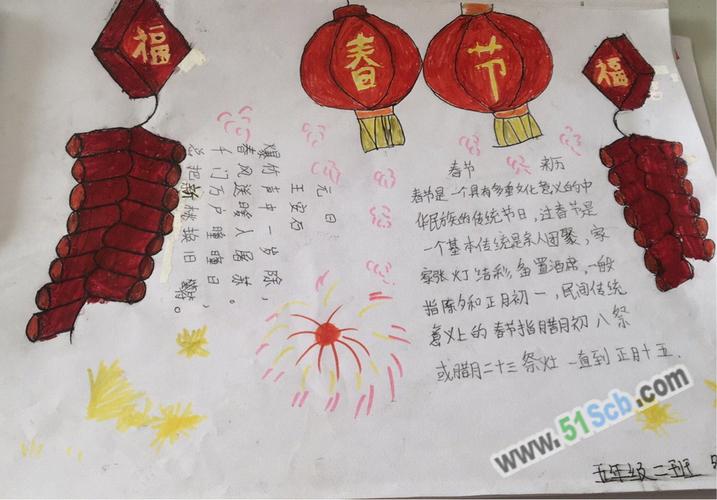 福
春
节
福
元日
王安石
爆竹声中一岁除，
春风送暖入屠苏。
千门万户曈曈日，
总把新桃换旧
春节 来历
春节是一个具有多重文化意义的中
华民族的传统节日，过春节是
一个基本传统是亲人团聚，家
家张灯结彩，备置酒席，一般
指除夕和正月初一，民间传统
意义上的春节指腊月初八祭
或腊月二十三祭灶 一直到正月十五.
www.51Scb.com
五年级二班